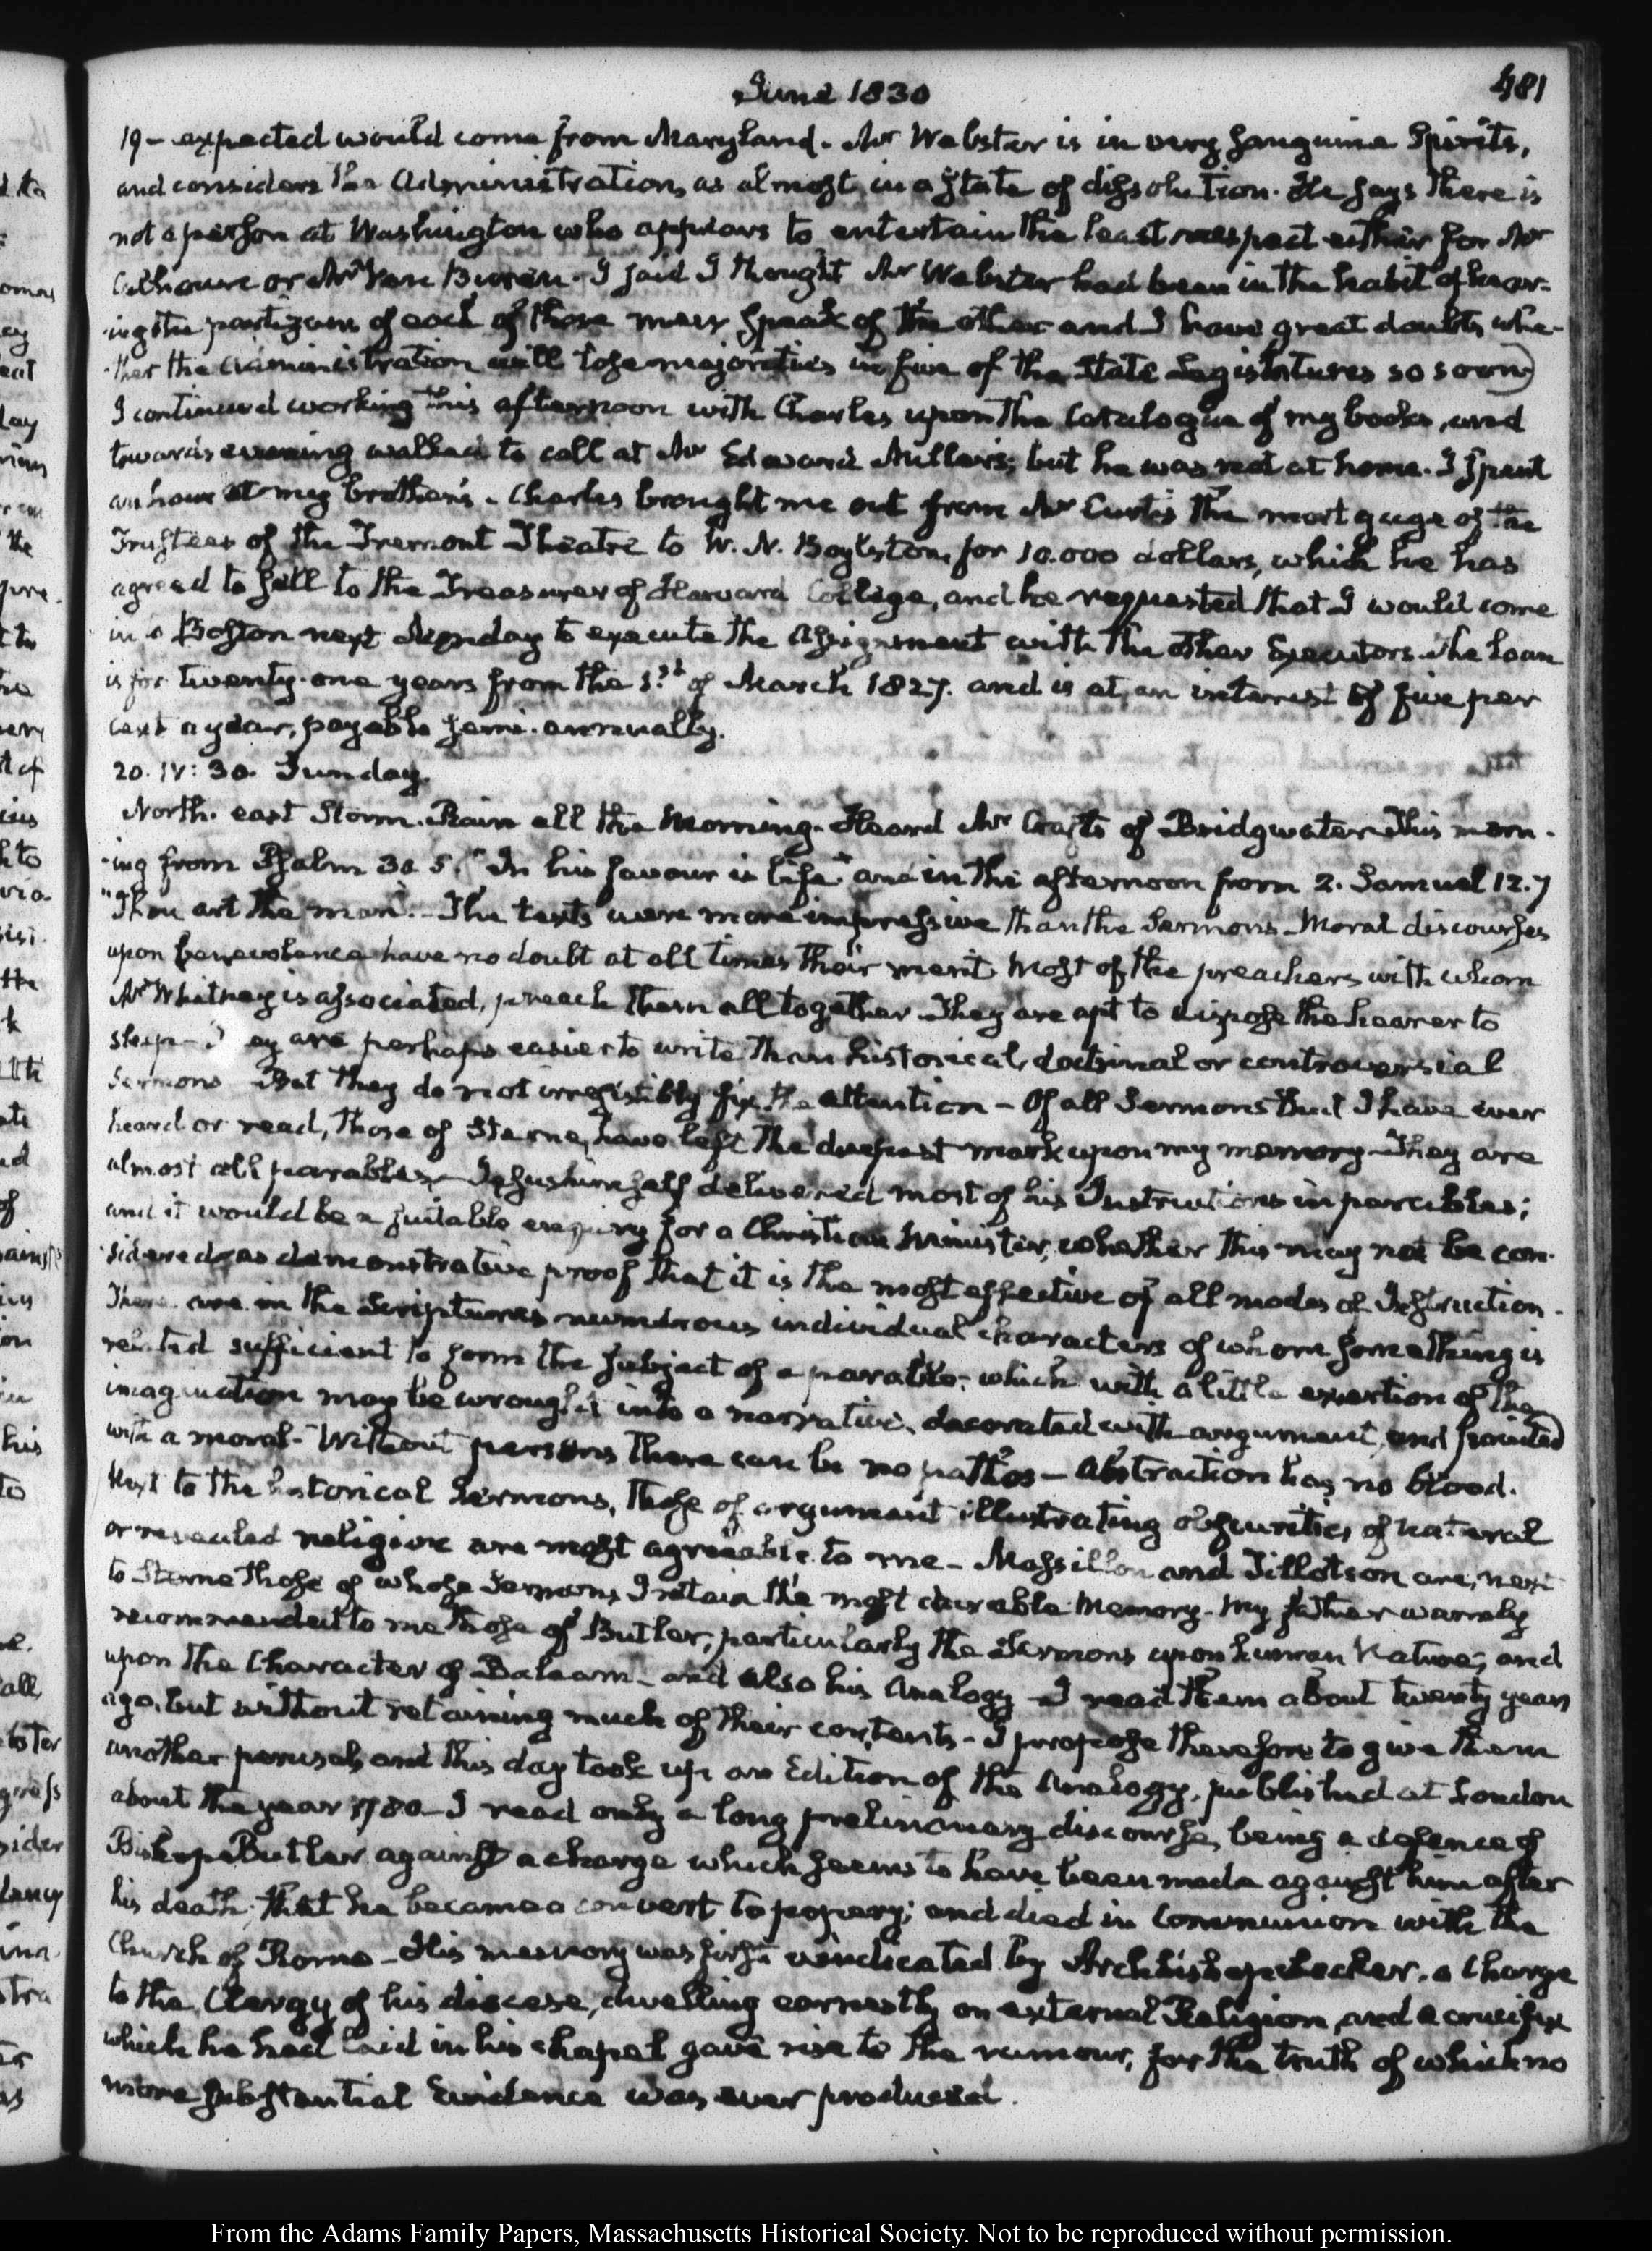 June 1830
481
19 - expected would come from Maryland. Mr Webster is in very sanguine Spirits,
and considers the Administration, as almost in a state of dissolution. He says there is
not a person at Washington who appears to entertain the least respect either for Mr
Calhoun or Mr Van Buren. I said I thought Mr Webster had been in the habit of hear-
ing the partizans of each of those men speak of the other and I have great doubts whe-
-ther the Administration will lose majorities in five of the State Legislatures so soon
I continued working this afternoon with Charles upon the Catalogue of my books, and
towards evening walked to call at Mr Edward Miller's; but he was not at home. I spent
an hour at my brother's. Charles brought me out from Mr Curtis the mortgage of the
Trustees of the Tremont Theatre to W. N. Boylston, for 10.000 dollars, which he has
agreed to sell to the Treasurer of Harvard College, and he requested that I would come
in to Boston next Monday to execute the assignment with the other Executors. The loan
is for twenty-one years from the 1st of March 1827. and is at an interest of five per
cent a year, payable semi-annually.
20. IV: 30. Sunday.
North-east Storm. Rain all the Morning. Heard Mr Crafts of Bridgwater this morn-
-ing from Psalm 30. 5. "In his favour is life" and in the afternoon from 2. Samuel 12. 7
"Thou art the man". The texts were more impressive than the Sermons. Moral discourses
upon benevolence have no doubt at all times their merit. Most of the preachers with whom
Mr Whitney is associated, preach them all together. They are apt to dispose the hearer to
sleep. ey are perhaps easier to write than historical, doctrinal or controversial
Sermons But they do not irresistibly fix the attention - Of all Sermons that I have ever
heard or read, those of Sterne, have left the deepest mark upon my memory. They are
almost all parables. Jesus himself delivered most of his Instructions in parables;
and it would be a suitable enquiry for a Christian Minister, whether this may not be con-
sidered as demonstrative proof that it is the most effective of all modes of Instruction.
There are in the Scriptures numerous individual characters of whom something is
related sufficient to form the subject of a parable; which with a little exertion of the
imagination may be wrought into a narrative, decorated with argument, and pointed
with a moral - Without persons there can be no pathos - Abstraction has no blood.
Next to the historical Sermons, those of argument illustrating obscurities of natural
or revealed religion are most agreeable to me - Massillon and Tillotson are, next
to Sterne those of whose Sermons I retain the most durable memory. My father warmly
recommended to me those of Butler, particularly the Sermons upon human Nature, and
upon the Character of Balaam - and also his Analogy - I read them about twenty years
ago, but without retaining much of their contents - I propose therefore to give them
another perusal, and this day took up an Edition of the Analogy, published at London
about the year 1780 - I read only a long preliminary discourse, being a defence of
Bishop Butler against a charge which seems to have been made against him after
his death; that he became a convert to popery; and died in Communion with the
Church of Rome - His memory was first vindicated by Archbishop Secker. a Charge
to the Clergy of his diocese, dwelling earnestly on external Religion, and a crucifix
which he had laid in his chapel gave rise to the rumour, for the truth of which no
more substantial Evidence was ever produced.
From the Adams Family Papers, Massachusetts Historical Society. Not to be reproduced without permission.